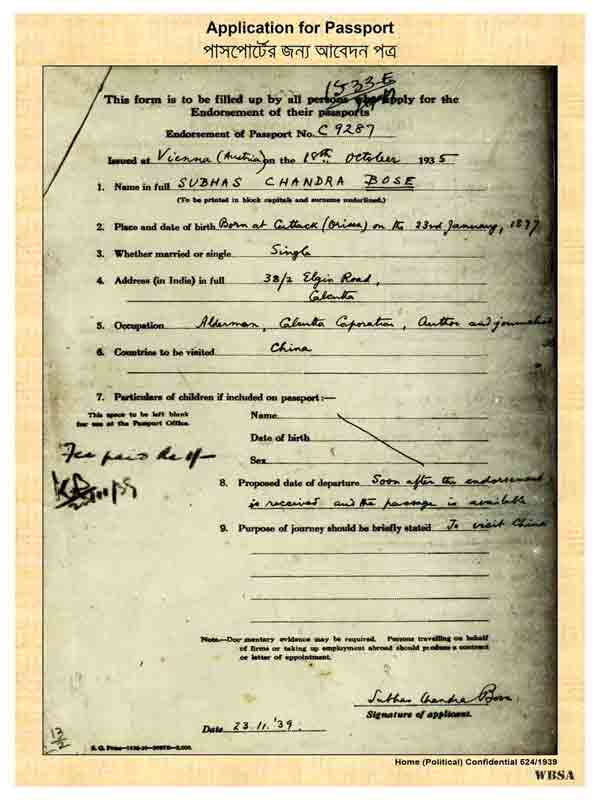 Application for Passport
পাসপোর্টের জন্য আবেদন পত্র
This form is to be filled up by all persons who apply for the
Endorsement of their passports
Endorsement of Passport No. C 9287
Issued at Vienna (Austria) on the 18th October 1935
1. Name in full SUBHAS CHANDRA BOSE
(To be printed in block capitals and surname underlined.)
2. Place and date of birth Born at Cuttack (Orissa) on the 23rd January, 1897
3. Whether married or single Single
4. Address (in India) in full 38/2 Elgin Road,
Calcutta
5. Occupation Alderman, Calcutta Corporation, Author and journalist
6. Countries to be visited China
7. Particulars of children if included on passport:—
This space to be left blank
for use at the Passport Office.
Name
Date of birth
Sex
Fee paid Re
8. Proposed date of departure Soon after the endorsement
is received and the passage is available
9. Purpose of journey should be briefly stated To visit China
Note.—Documentary evidence may be required. Persons travelling on behalf
of firms or taking up employment abroad should produce a contract
or letter of appointment.
Subhas Chandra Bose
Signature of applicant.
Date 23.11.'39.
13/2
Home (Political) Confidential 624/1939
WBSA